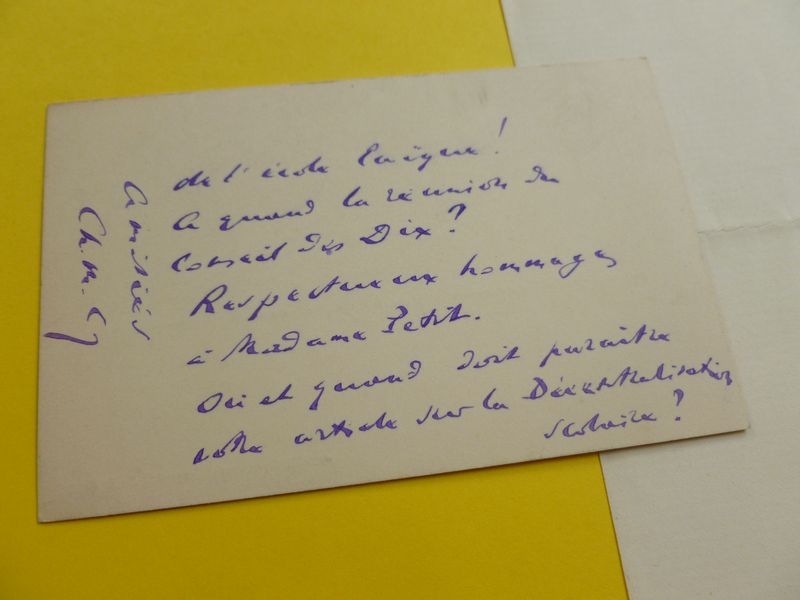 de l'école laïque!
A quand la réunion du
Conseil des Dix?
Respectueux hommages
à Madame Petit.
Où et quand doit paraître
votre article sur la Décentralisation
scolaire?
Amitiés
Ch. M.